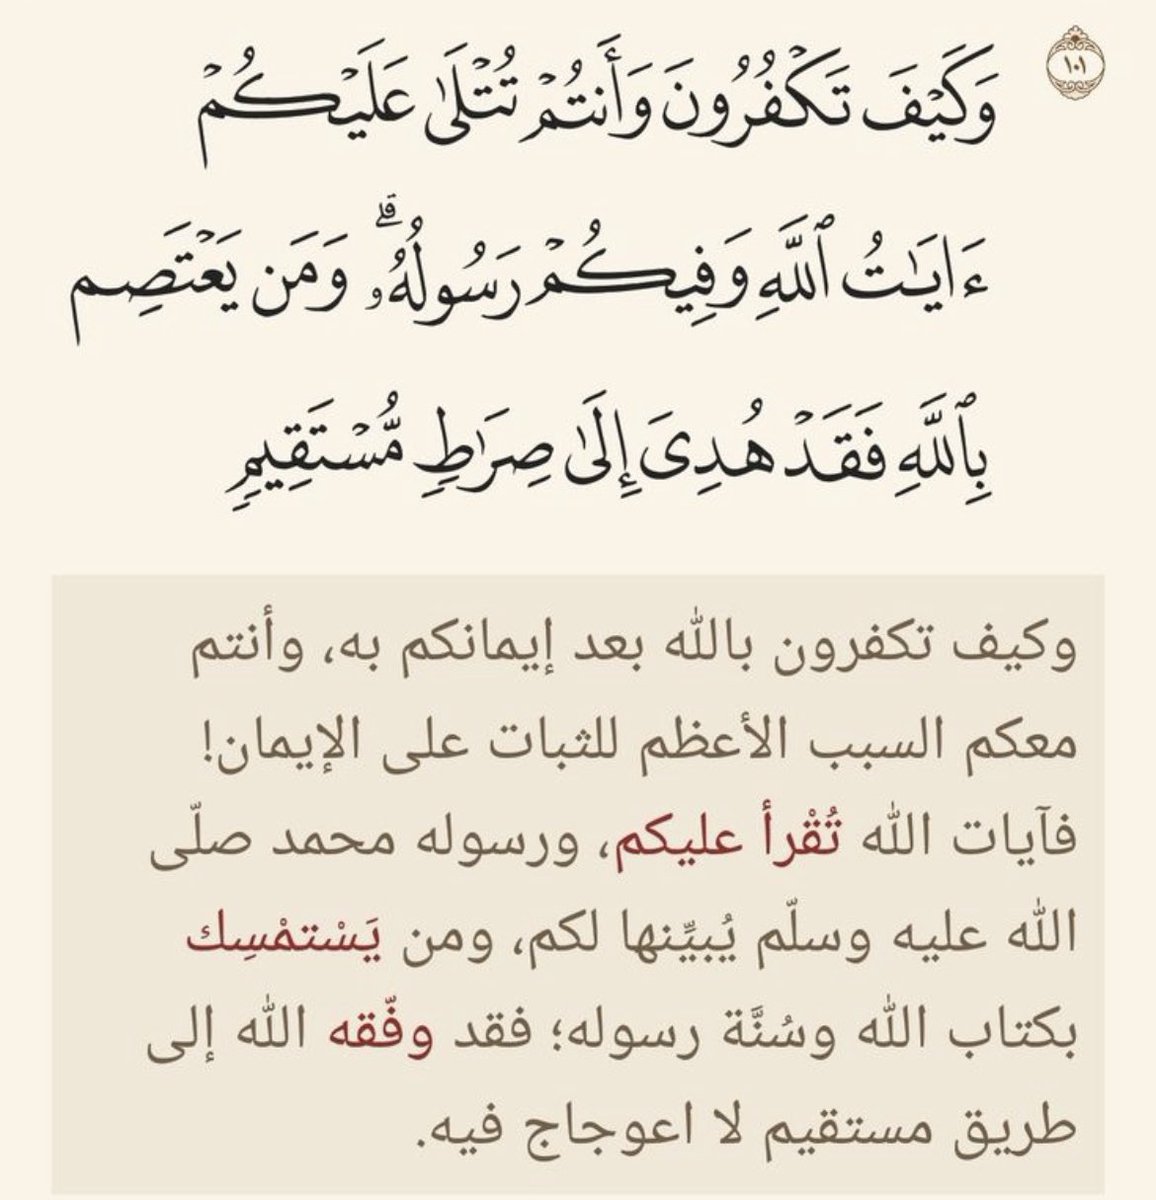 ١٠١
وَكَيْفَ تَكْفُرُونَ وَأَنتُمْ تُتْلَىٰ عَلَيْكُمْ
ءَايَـٰتُ ٱللَّهِ وَفِيكُمْ رَسُولُهُۥ ۗ وَمَن يَعْتَصِم
بِٱللَّهِ فَقَدْ هُدِىَ إِلَىٰ صِرَٰطٍ مُّسْتَقِيمٍ
وكيف تكفرون بالله بعد إيمانكم به، وأنتم
معكم السبب الأعظم للثبات على الإيمان!
فآيات الله تُقْرأ عليكم، ورسوله محمد صلّى
الله عليه وسلّم يُبيِّنها لكم، ومن يَسْتمْسِك
بكتاب الله وسُنَّة رسوله؛ فقد وفّقه الله إلى
طريق مستقيم لا اعوجاج فيه.